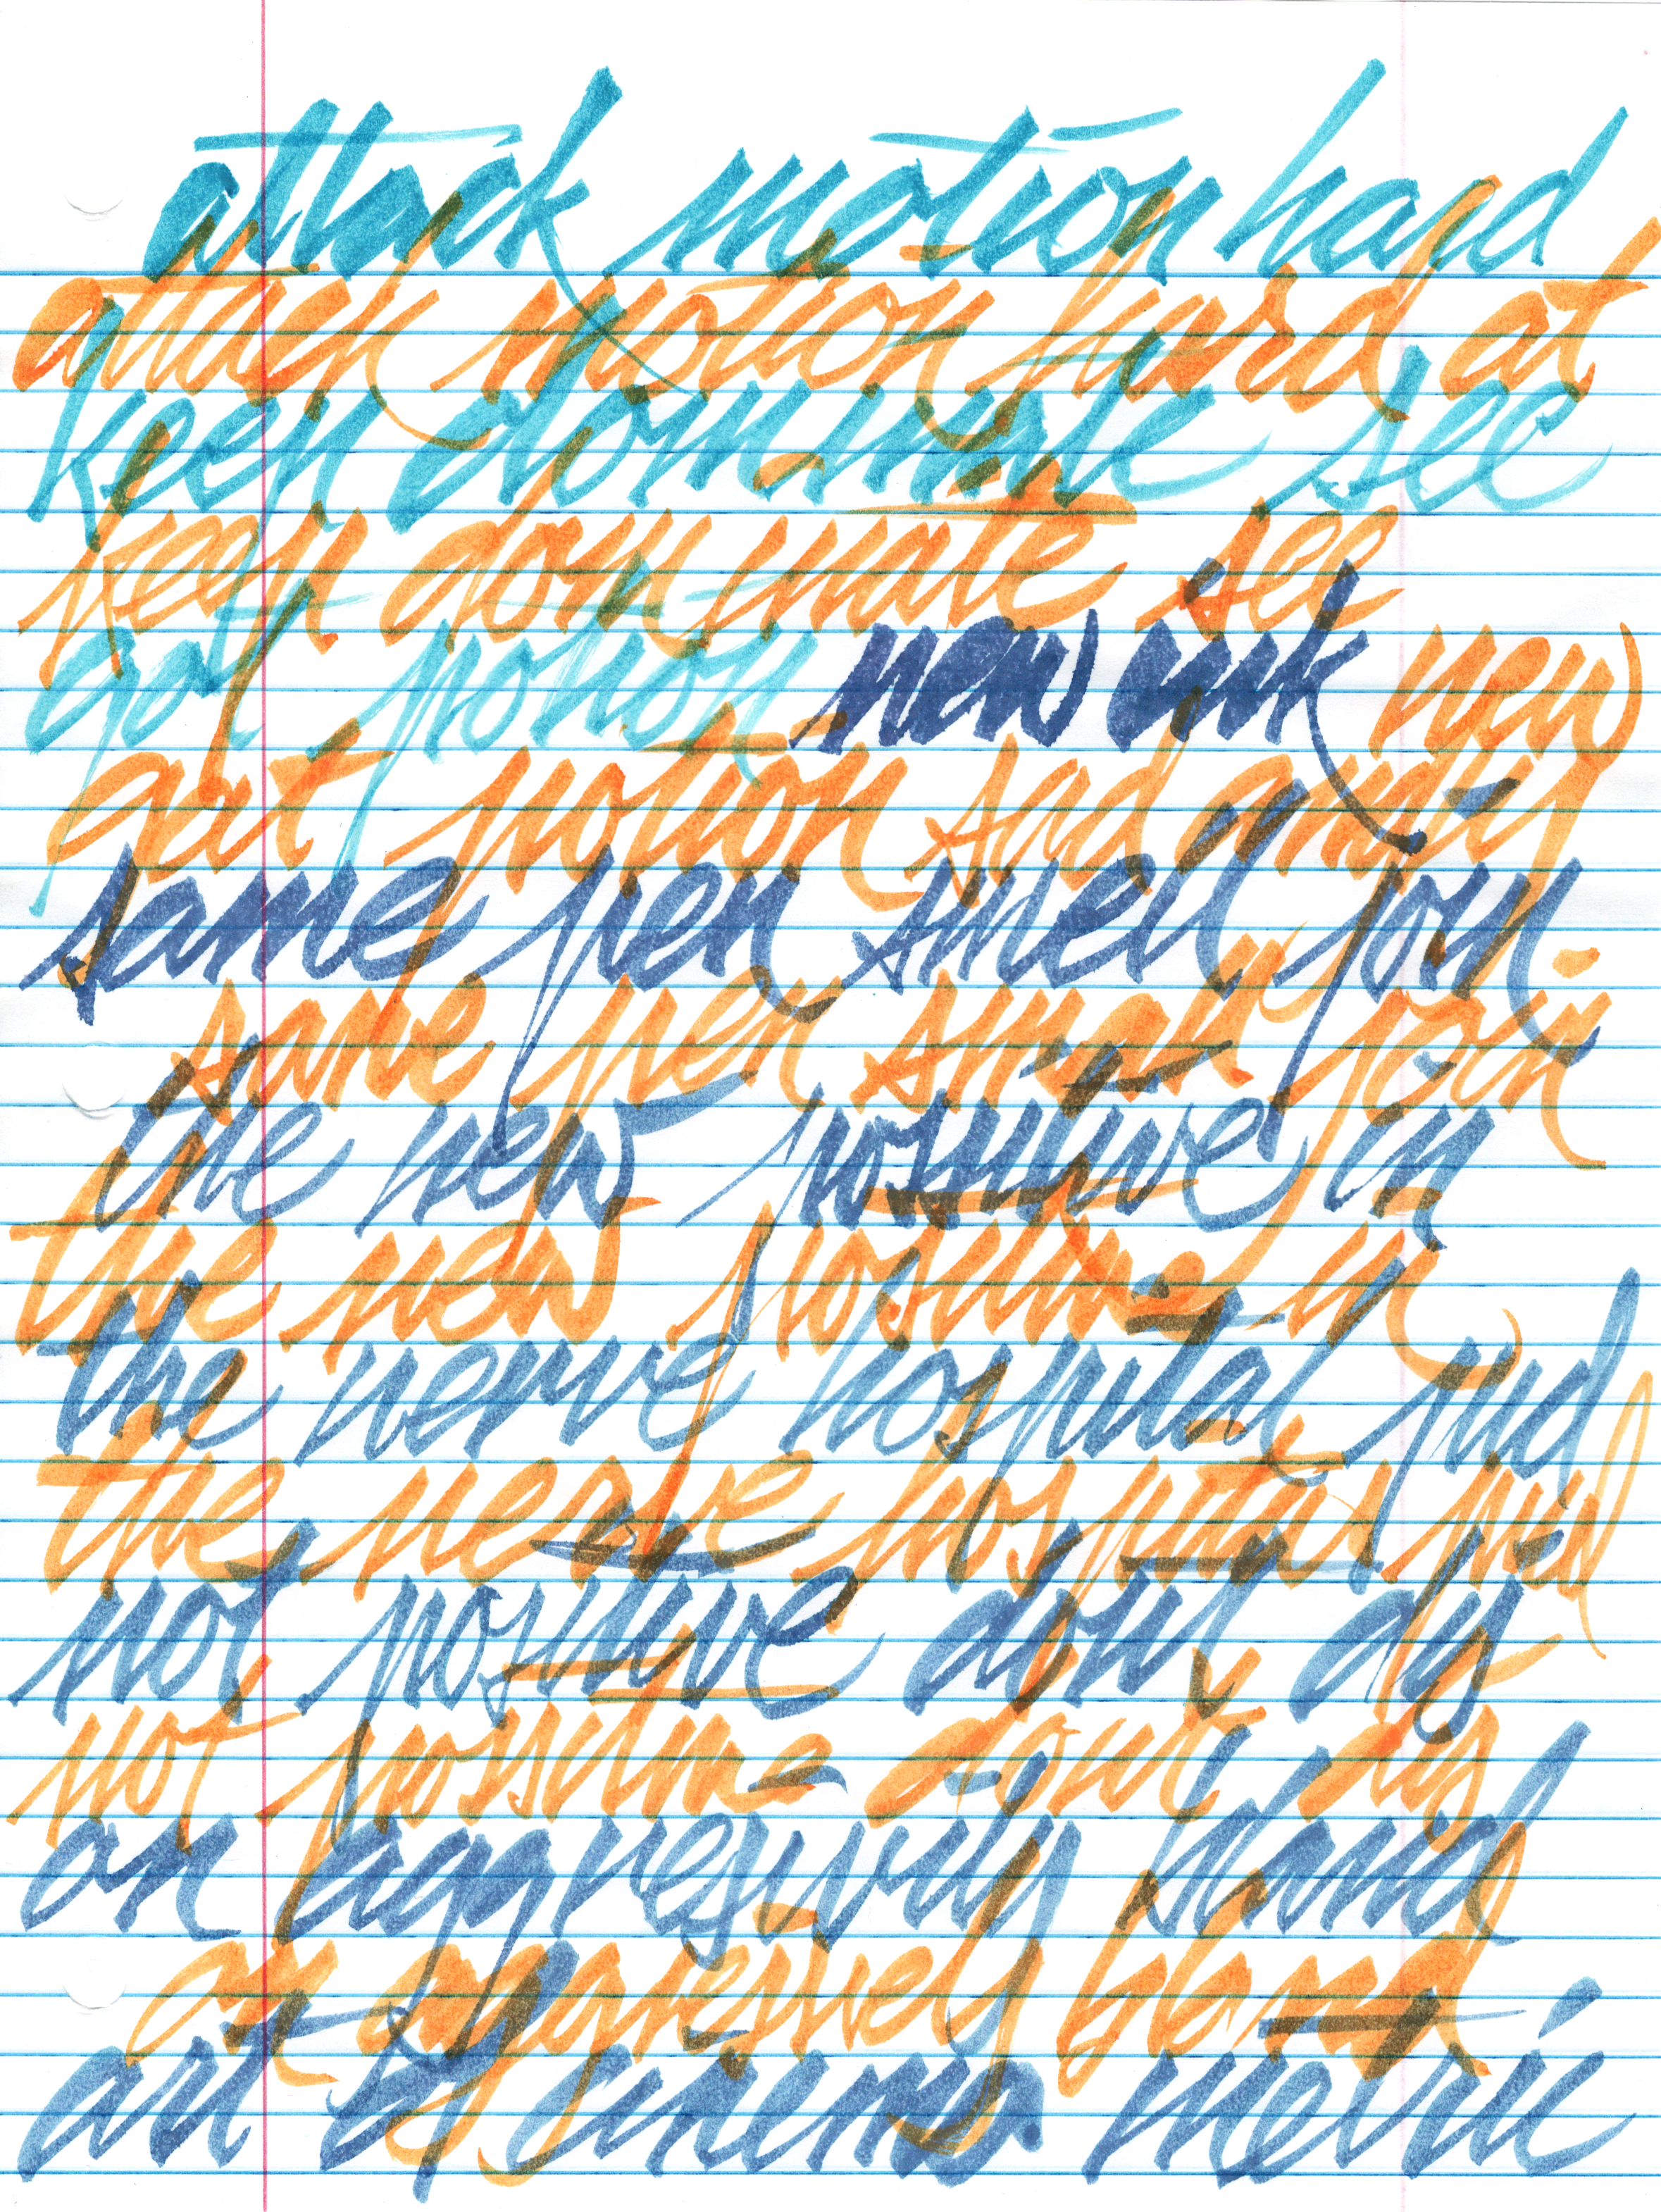 attack motion hard
attack motion hard at
keen dominate see
keen dominate see
got potion new ink new
got potion sad andy
same pen smell
same pen join
the new positive in
the new in
the nerve hospital
the nerve hospital
not positive don't
not don't
an aggressively bland
an aggressively bland
art of cinema metric